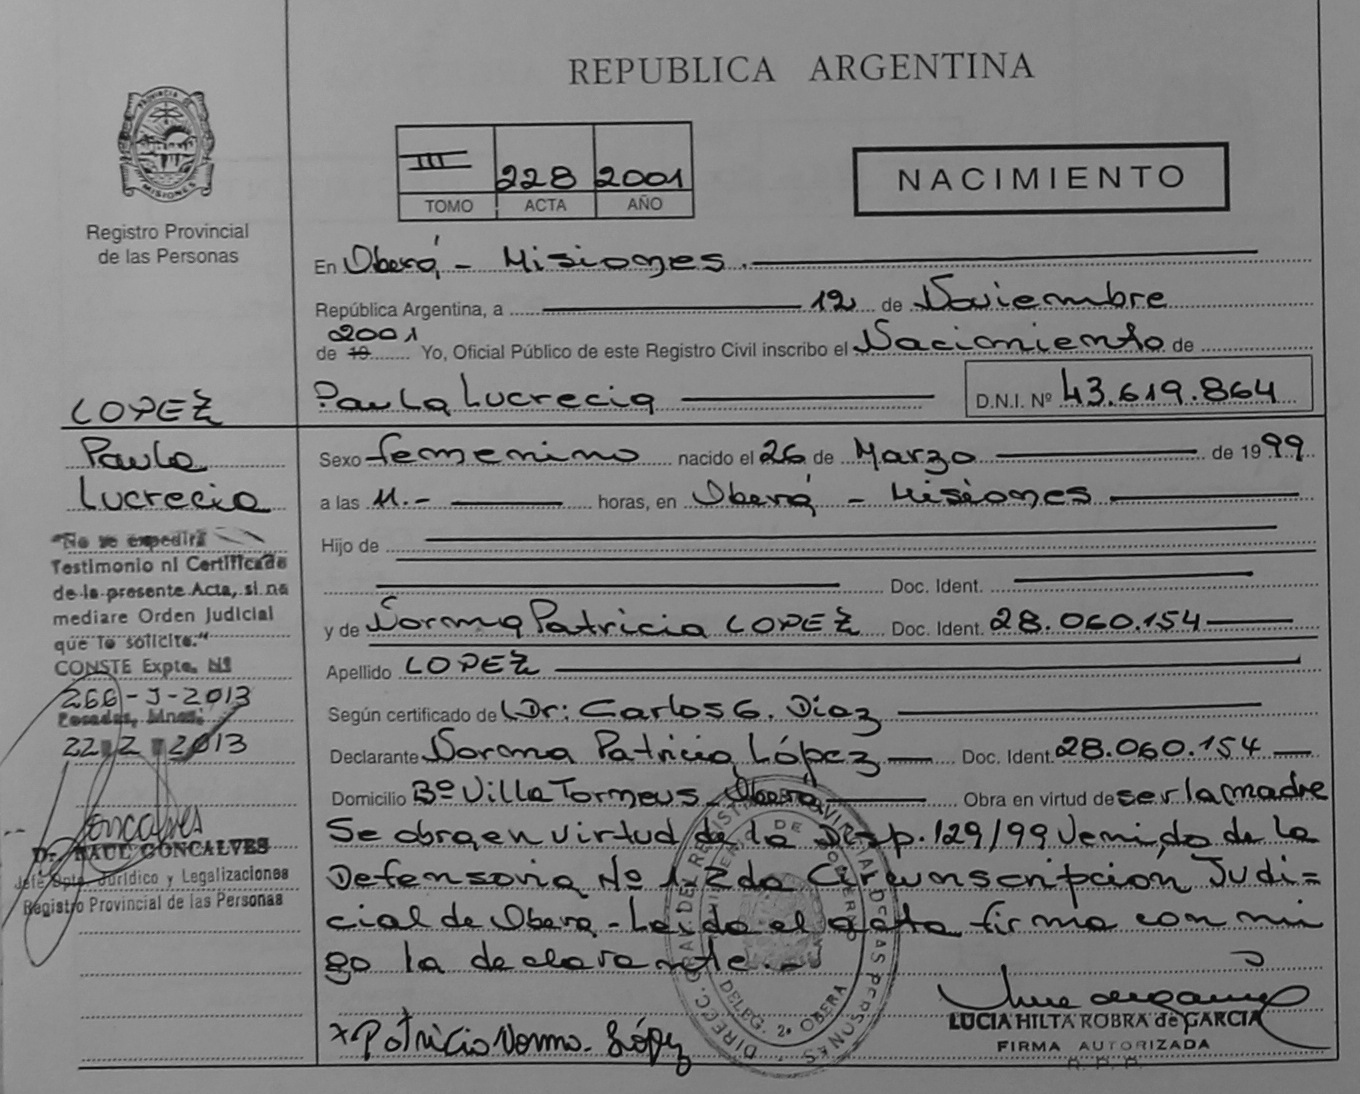 REPUBLICA ARGENTINA
PROVINCIA DE
MISIONES
Registro Provincial
de las Personas
III 228 2001
TOMO ACTA AÑO
NACIMIENTO
En Oberá - Misiones.
República Argentina, a 12 de Noviembre
2001
de 19 Yo, Oficial Público de este Registro Civil inscribo el Nacimiento de
Paula Lucrecia D.N.I. Nº 43.619.864
LOPEZ
Paula
Lucrecia
"No se expedirá
Testimonio ni Certificado
de la presente Acta, si no
mediare Orden Judicial
que lo solicite."
CONSTE Expte. Nº
266-J-2013
Posadas, Mnes.
22 2 2013
Goncalves
Dr. RAUL GONCALVES
Jefe Dpto. Jurídico y Legalizaciones
Registro Provincial de las Personas
Sexo femenino nacido el 26 de Marzo de 1999
a las 11.- horas, en Oberá - Misiones
Hijo de
Doc. Ident.
y de Norma Patricia LOPEZ Doc. Ident. 28.060.154
Apellido LOPEZ
Según certificado de Dr: Carlos G. Díaz
Declarante Norma Patricia López Doc. Ident. 28.060.154
Domicilio Bº Villa Torneus - Oberá Obra en virtud de ser la madre
Se obra en virtud de la Disp. 129/99 Venido de la
Defensoria Nº 1 - 2da Circunscripcion Judi=
cial de Obera - Leida el acta firma con mi
go la declarante.-
x Patricia Norma López
DELEG. 2ª OBERA
LUCIA HILTA ROBRA de GARCIA
FIRMA AUTORIZADA
R. P. P.